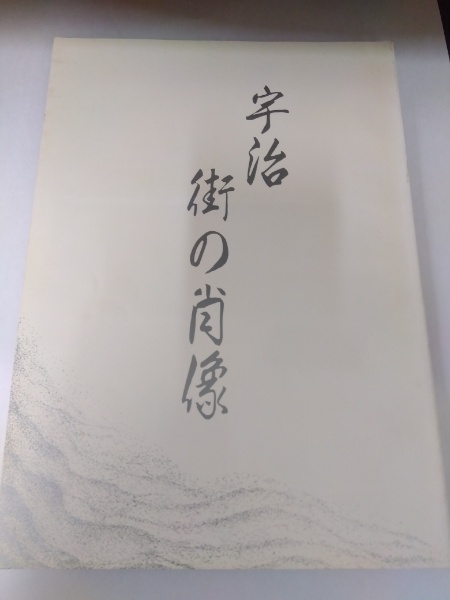 宇治
街の肖像